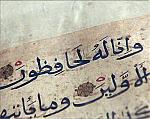 وَإِنَّا لَهُ لَحَافِظُونَ
الْأَوَّلِينَ وَمَا يَأْتِيهِمْ